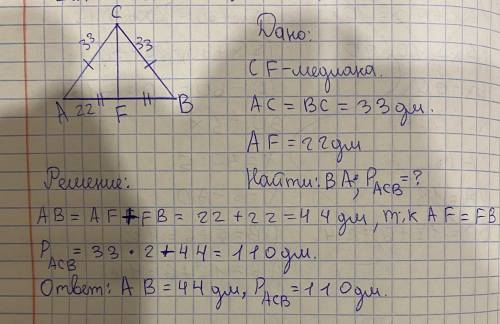 C
33 33
A 22 F B
Дано:
CF-медиана.
AC = BC = 33 дм.
AF = 22 дм
Найти: BA; P_ACB = ?
Решение:
AB = AF + FB = 22 + 22 = 44 дм, т.к AF = FB
P_ACB = 33 · 2 + 44 = 110 дм.
Ответ: AB = 44 дм, P_ACB = 110 дм.